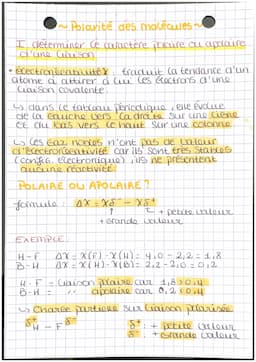 ~ Polarité des molécules ~
I. déterminer le caractère polaire ou apolaire
d'une liaison
• électronégativité χ : traduit la tendance d'un
atome à attirer à lui les électrons d'une
liaison covalente.
↳ dans le tableau périodique, elle évolue
de la gauche vers la droite sur une ligne
et du bas vers le haut sur une colonne
↳ les gaz nobles n'ont pas de valeur
d'électronégativité car ils sont très stables
(config. électronique), ils ne présentent
aucune réactivité
POLAIRE OU APOLAIRE ?
formule : Δχ = χδ⁻ − χδ⁺
+ petite valeur
+ grande valeur
EXEMPLE :
H-F Δχ = χ(F) - χ(H) = 4,0 - 2,2 = 1,8
B-H Δχ = χ(H) - χ(B) = 2,2 - 2,0 = 0,2
H-F = liaison polaire car 1,8 > 0,4
B-H = " apolaire car 0,2 < 0,4
↳ Charge partielle sur liaison polarisée
δ⁺ H - F δ⁻
δ⁺ : + petite valeur
δ⁻ : + grande valeur